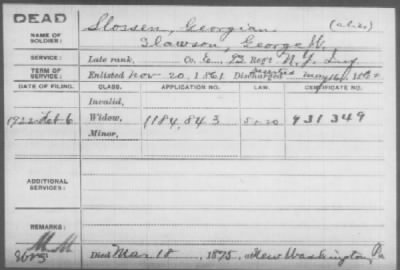 DEAD
NAME OF SOLDIER: Slossen, Georgian
(als.)
Slawson, George W.
SERVICE: Late rank, Co. E, 92 Reg't N.Y. Inf
TERM OF SERVICE: Enlisted Nov 20, 1861 Discharged May 16, 1862
DATE OF FILING. CLASS. APPLICATION NO. LAW. CERTIFICATE NO.
Invalid,
1922 Oct 6 Widow, 1184,843 931349
Minor,
ADDITIONAL SERVICES:
REMARKS:
Died Mar 18, 1875, at New Washington, Pa